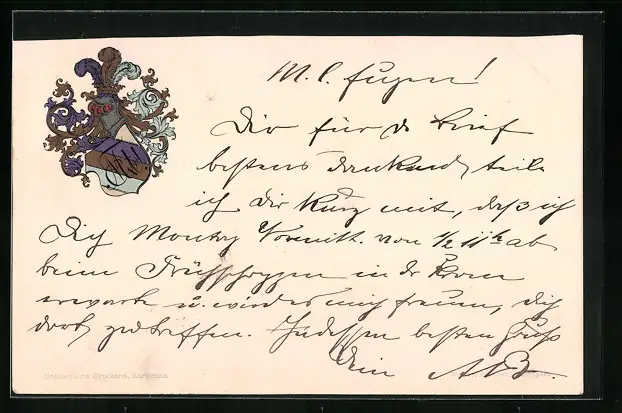 M. l. Eugen!
Dir für d. Brief
bestens dankend, teile
ich Dir kurz mit, daß ich
Dich Montag Vormitt. von 1/2 11 h ab
beim Frühschoppen in der Krone
erwarte u. würde mich freuen, Dich
dort zu treffen. Indessen besten Gruß
Dein AB.
Druckerei, Karlsruhe